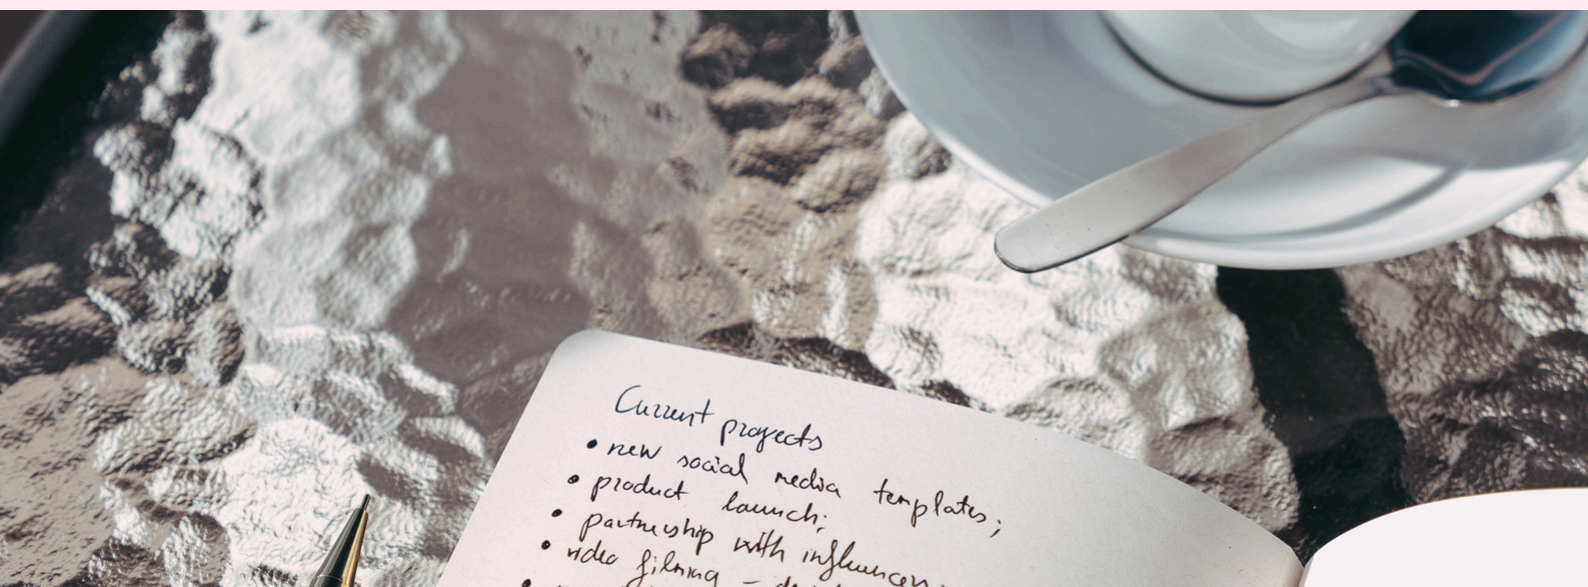 Current projects
• new social media templates;
• product launch;
• partnership with influencers;
• video filming –